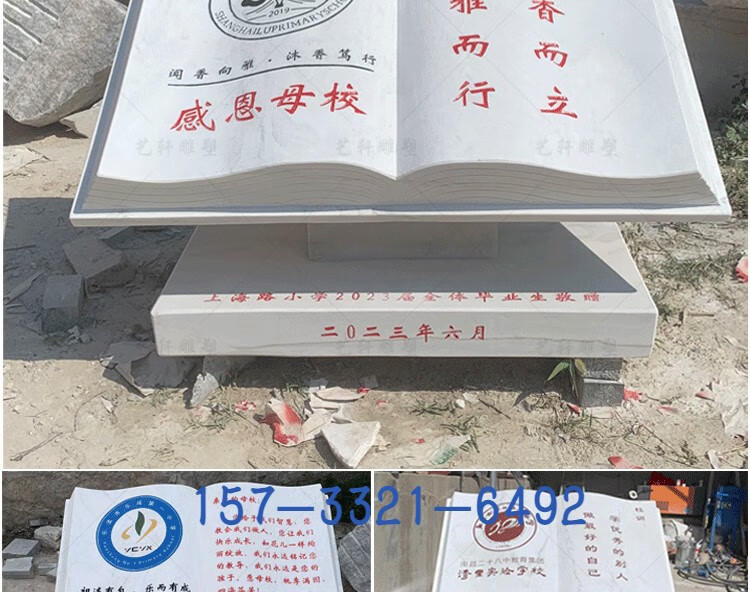 2019
SHANGHAILUPRIMARYSCH
闻香向雅·沐香笃行
感恩母校
雅而行
香而立
艺轩雕塑
艺轩雕塑
上海路小学2023届全体毕业生敬赠
二〇二三年六月
艺轩雕塑
艺轩雕塑
157-3321-6492
YCYX
我们智慧，您
教会我们做人，您让我们
快乐成长，如花儿一样绚
丽绽放，我们永远铭记您
的教导，我们永远是您的
孩子，愿母校，桃李满园，
乐而有成
校训
做最好的自己
南昌二十八中教育集团
实验学校